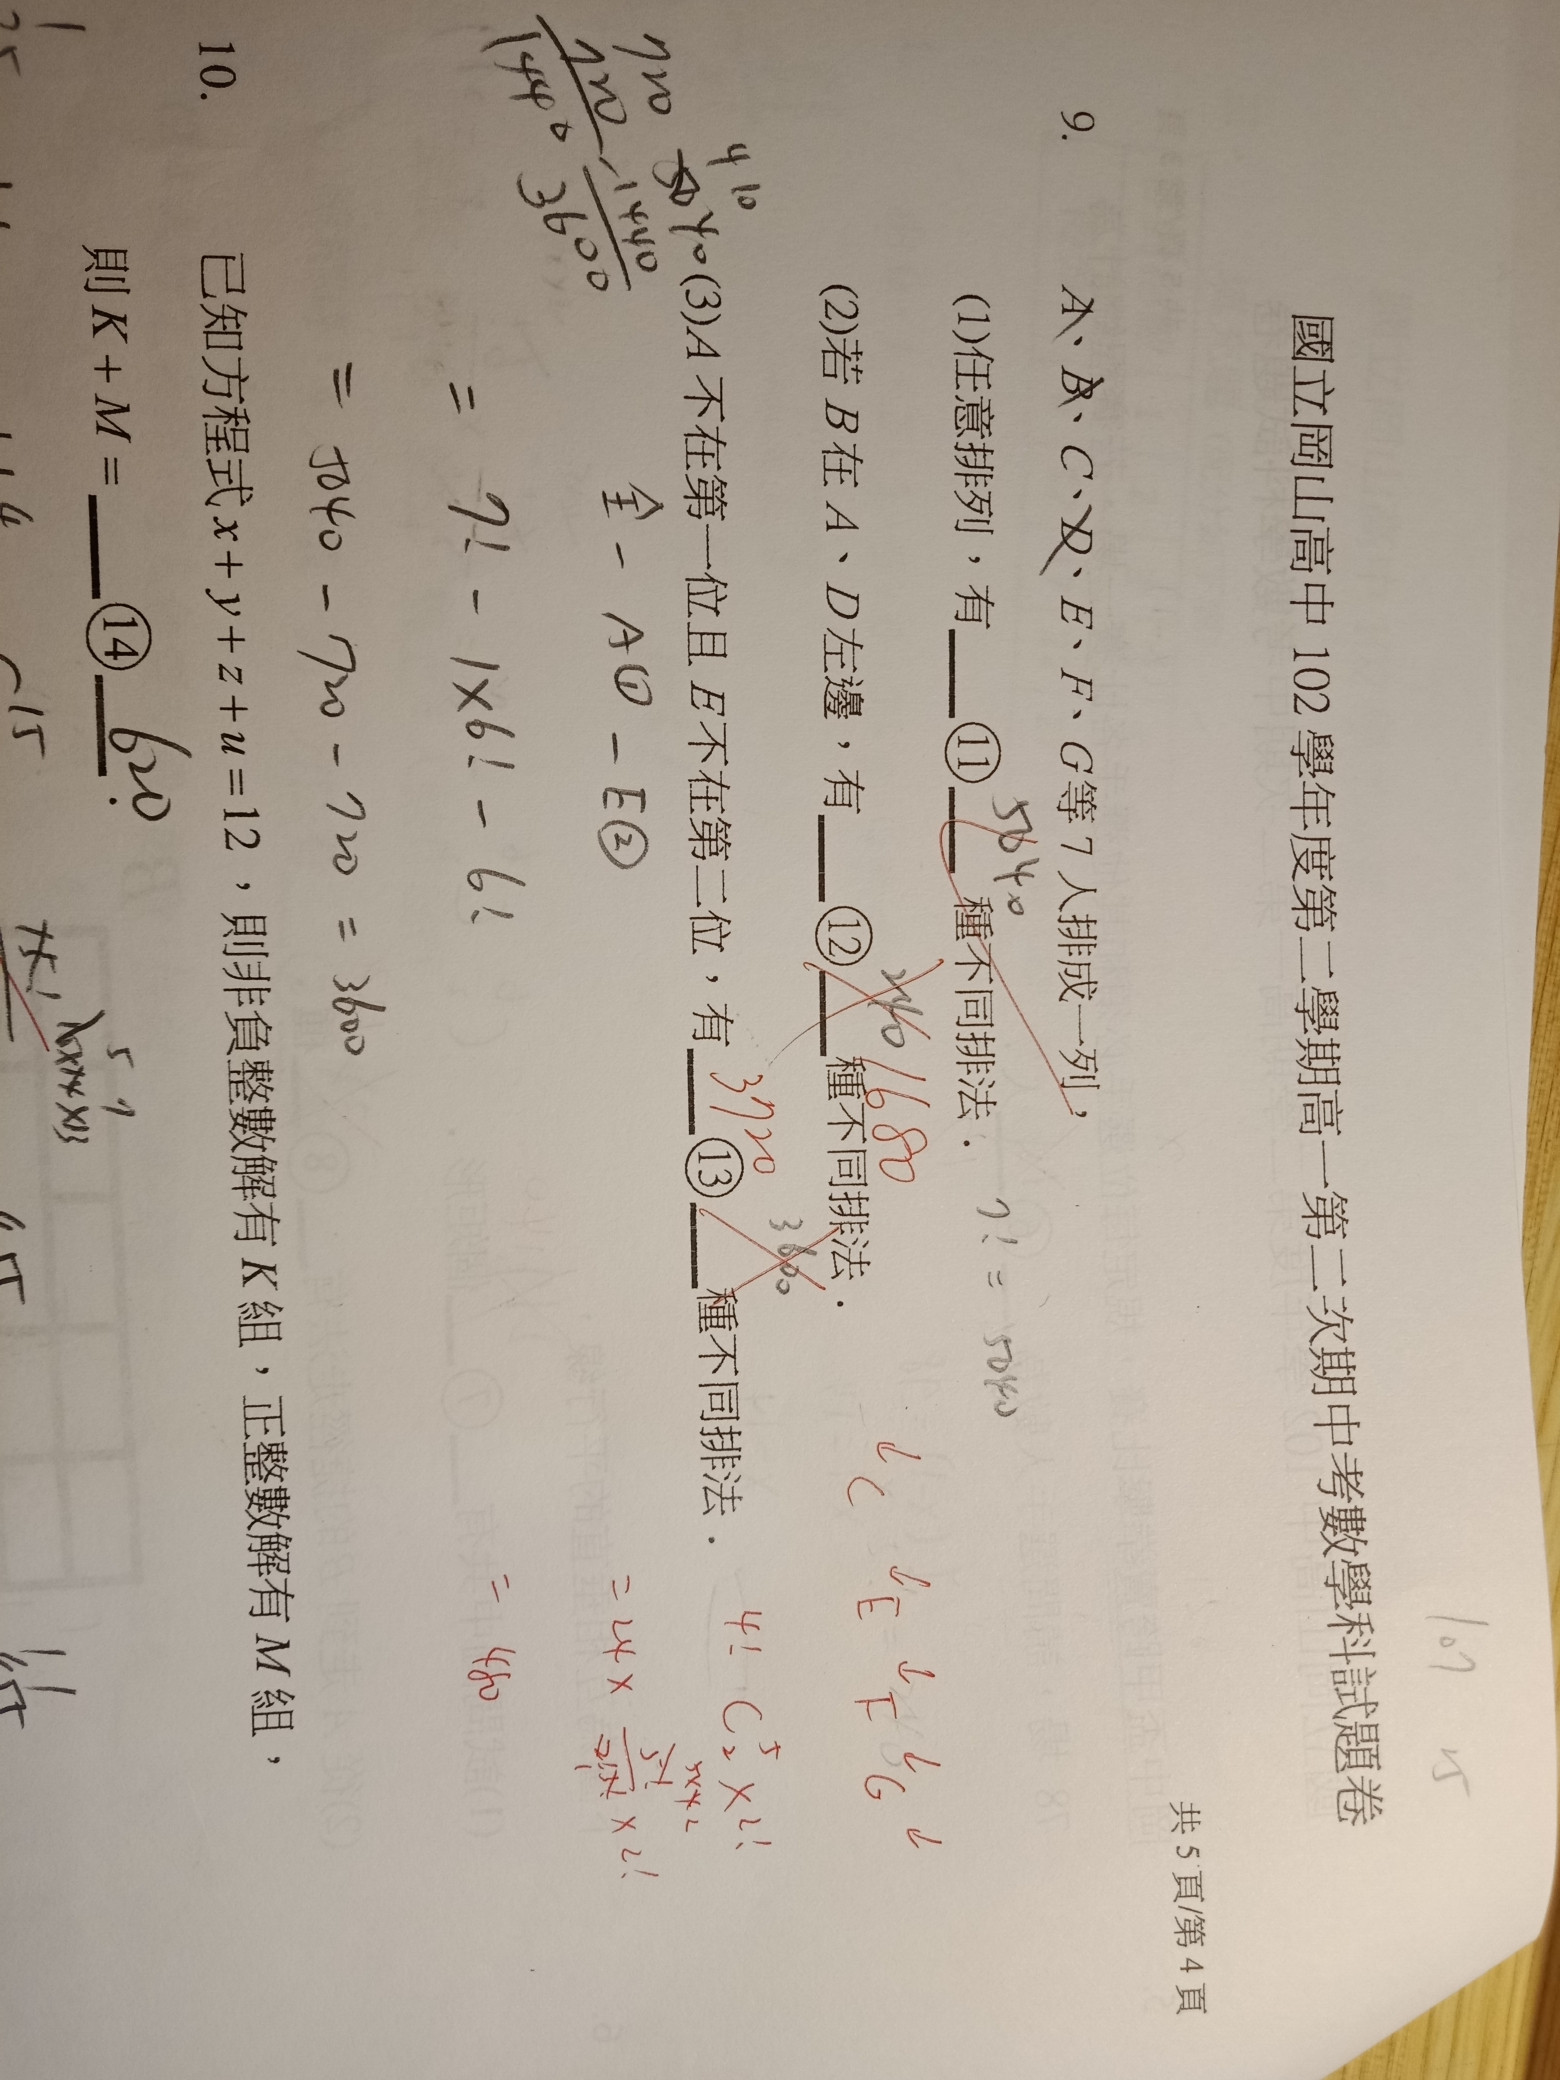 107 5
國立岡山高中 102 學年度第二學期高一第二次期中考數學科試題卷
共 5 頁/第 4 頁
9. A、B、C、D、E、F、G等 7 人排成一列,
(1)任意排列,有 ⑪ 5040 種不同排法. 7! = 5040
(2)若 B 在 A、D 左邊,有 ⑫ 240 1680 種不同排法.
↓C↓E↓F↓G↓
(3)A 不在第一位且 E 不在第二位,有 3720 ⑬ 3600 種不同排法.
4! C⁵₂×2!
全 - A① - E②
= 7! - 1×6! - 6!
= 480
= 5040 - 720 - 720 = 3600
720
720
1440
5040
1440
3600
10. 已知方程式 x + y + z + u = 12,則非負整數解有 K 組,正整數解有 M 組,
則 K + M = ⑭ 620.